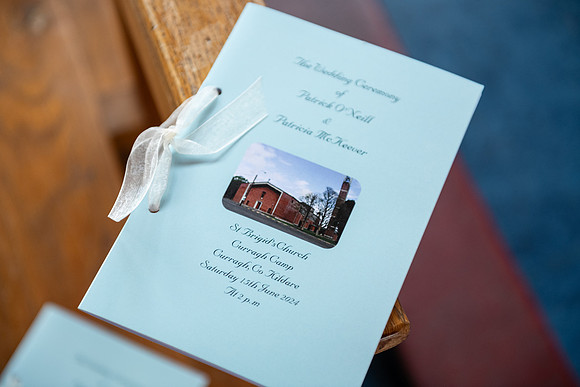 The Wedding Ceremony
of
Patrick O'Neill
&
Patricia McKeever
St Brigid's Church
Curragh Camp
Curragh, Co Kildare
Saturday 15th June 2024
At 2 p.m